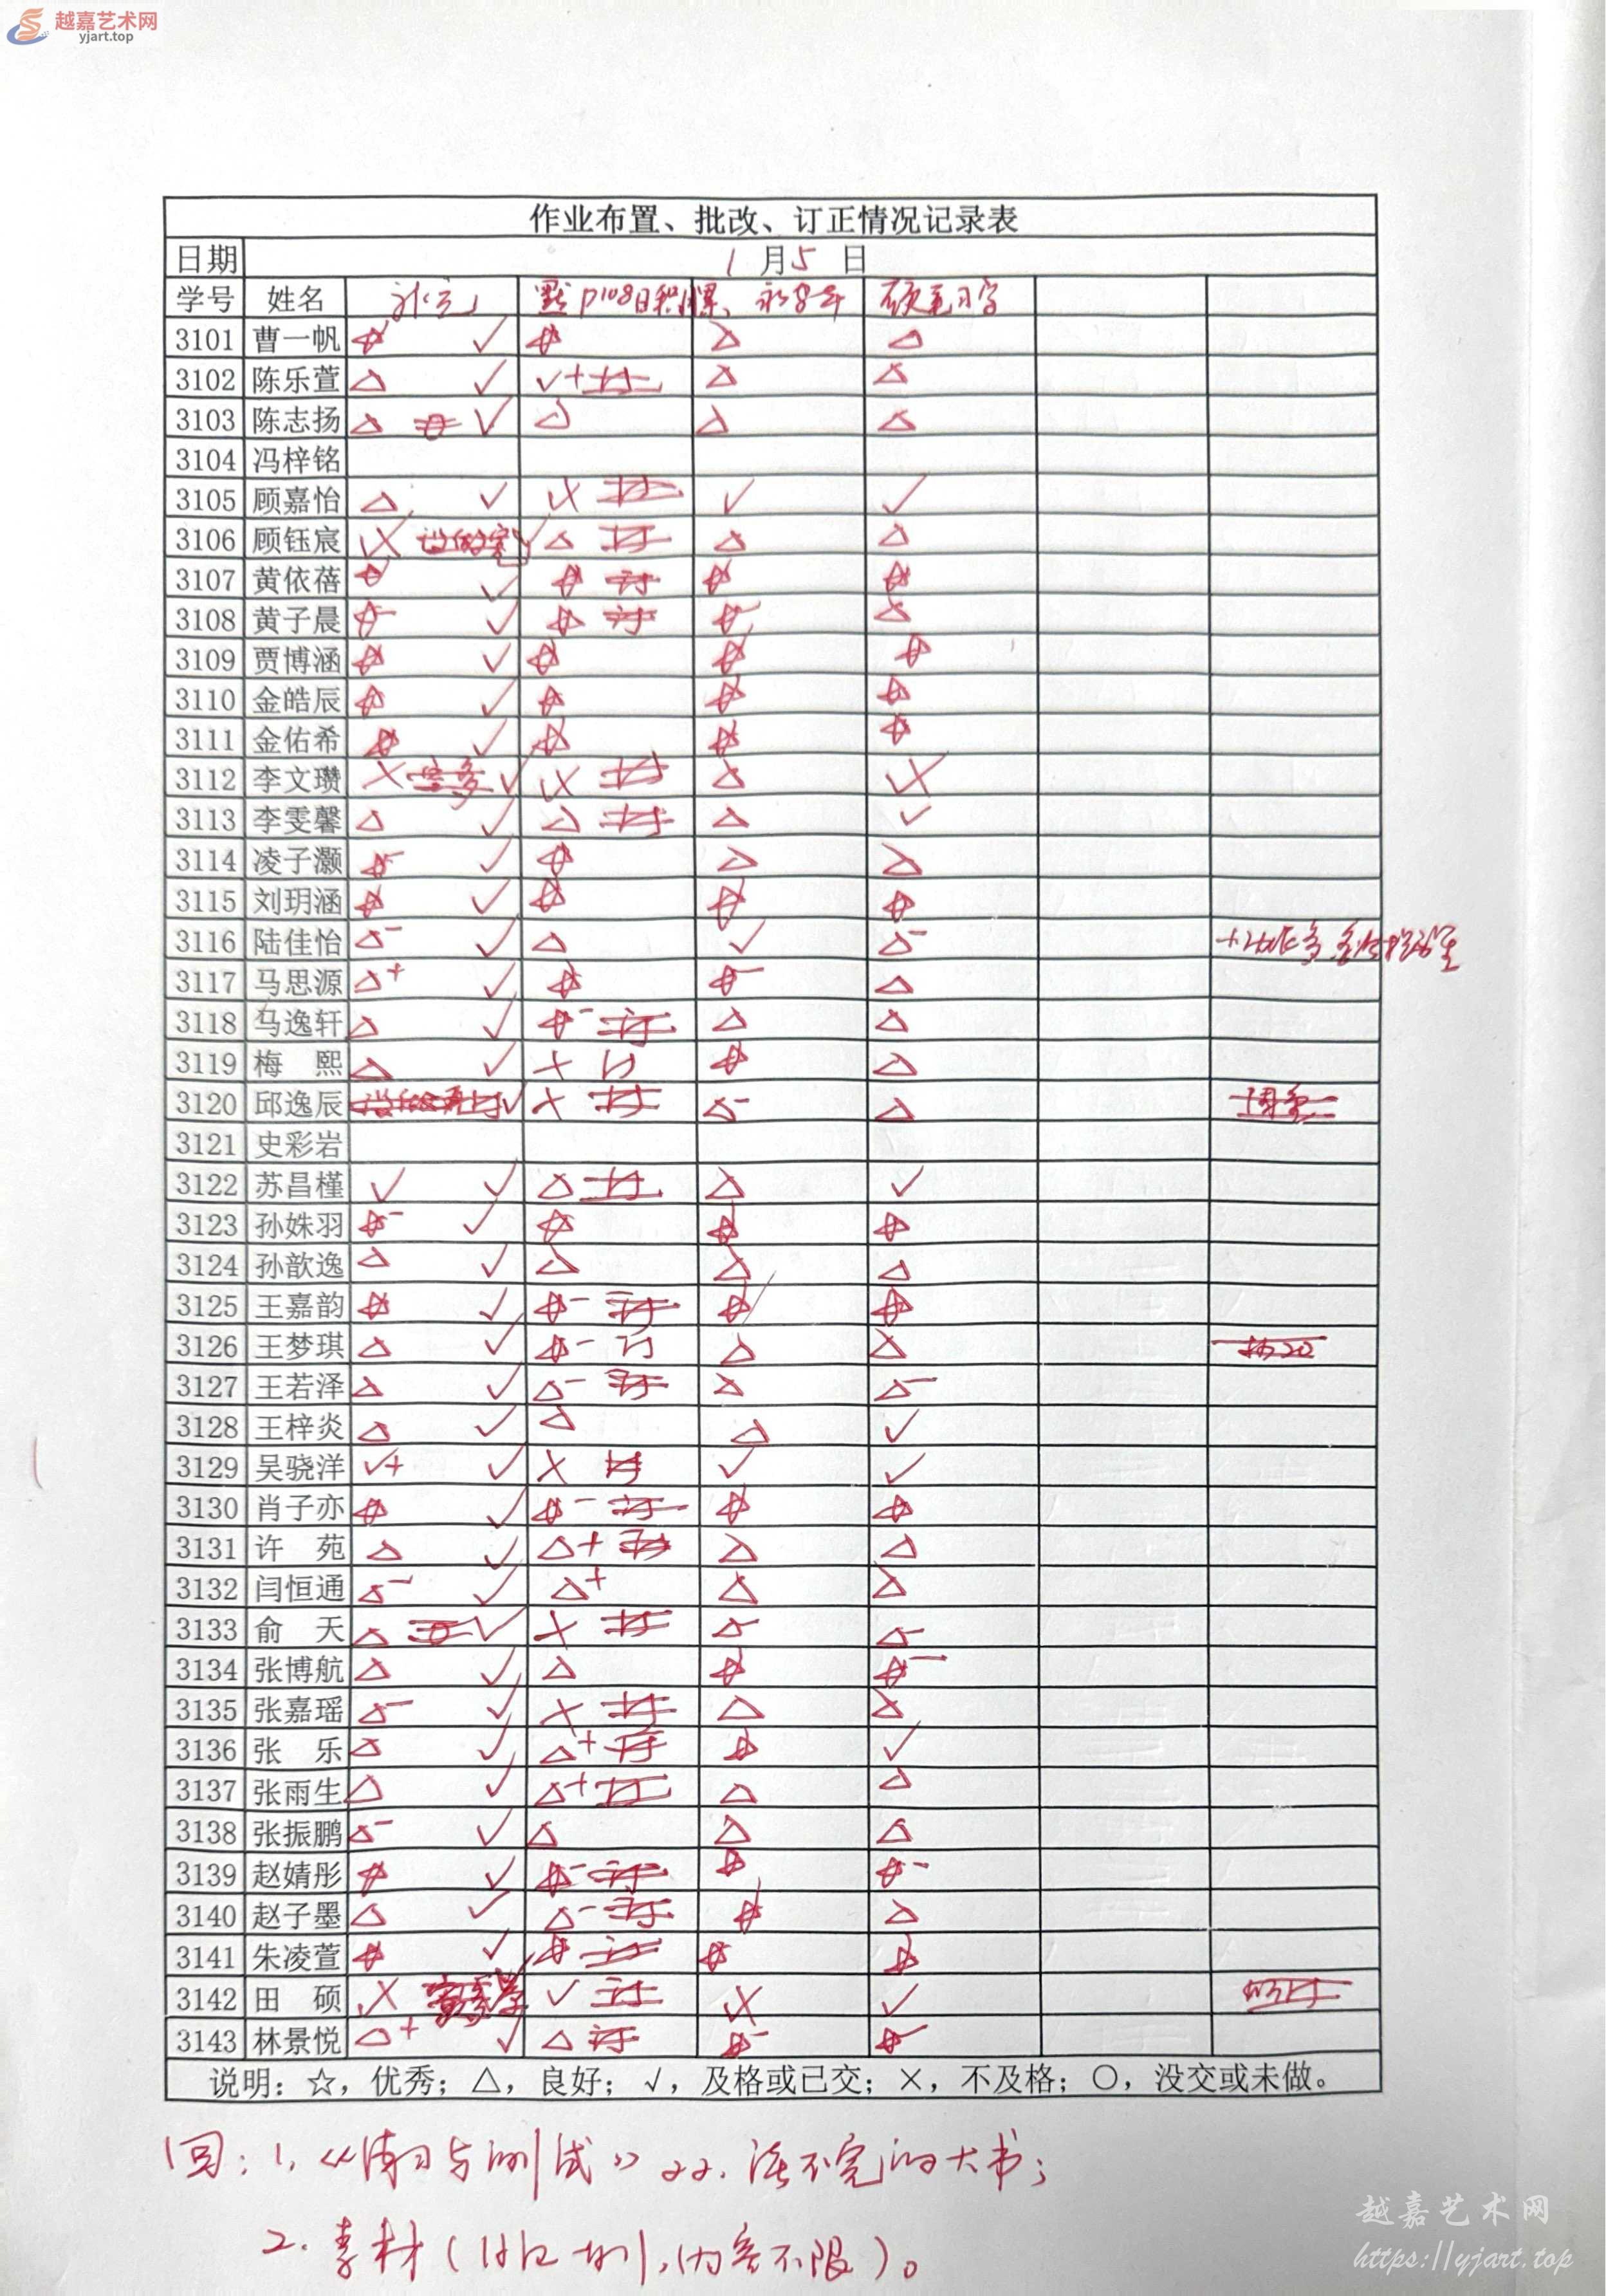 越嘉艺术网
yjart.top
作业布置、批改、订正情况记录表
日期 1 月 5 日
学号 姓名 默P108日积月累、 硬笔习字
3101 曹一帆 ☆ √ ☆ △ △
3102 陈乐萱 △ √ √+ 订 △ △
3103 陈志扬 △ √ △ △ △
3104 冯梓铭
3105 顾嘉怡 △ √ 订 √ √
3106 顾钰宸 √ △ 订 △ △
3107 黄依蓓 ☆ √ ☆ 订 ☆ ☆
3108 黄子晨 ☆- √ ☆ 订 ☆- △
3109 贾博涵 ☆ √ ☆ ☆ ☆
3110 金皓辰 ☆ √ ☆ ☆ ☆
3111 金佑希 ☆ √ ☆ ☆ ☆
3112 李文瓒 × √ 订 △
3113 李雯馨 △ √ △ 订 △ √
3114 凌子灏 ☆- √ ☆ △ △
3115 刘玥涵 ☆ √ ☆ ☆ ☆
3116 陆佳怡 △- √ △ √ △-
3117 马思源 △+ √ ☆ ☆- △
3118 马逸轩 △ √ ☆- 订 △ △
3119 梅 熙 △ √ × 订 ☆ △
3120 邱逸辰 √ × 订 △- △
3121 史彩岩
3122 苏昌槿 √ √ △ 订 △ √
3123 孙姝羽 ☆- √ ☆ ☆ ☆
3124 孙歆逸 △ √ △ △ △
3125 王嘉韵 ☆ √ ☆- 订 ☆ ☆
3126 王梦琪 △ √ ☆- 订 △ △
3127 王若泽 △ √ △- 订 △ △-
3128 王梓炎 △ √ △ △ √
3129 吴骁洋 √+ √ × 订 √ √
3130 肖子亦 ☆ √ ☆- 订 ☆ ☆
3131 许 苑 △ √ △+ 订 △ △
3132 闫恒通 △- √ △+ △ △
3133 俞 天 △ √ × 订 △- △-
3134 张博航 △ √ △ ☆ ☆-
3135 张嘉瑶 △- √ × 订 △ △
3136 张 乐 △ √ △+ 订 ☆ √
3137 张雨生 △ √ △+ 订 △ △
3138 张振鹏 △- √ △ △ △
3139 赵婧彤 ☆ √ ☆- 订 ☆ ☆-
3140 赵子墨 △ √ △- 订 ☆ △
3141 朱凌萱 ☆ √ ☆ 订 ☆ ☆
3142 田 硕 √ 订 √
3143 林景悦 △+ √ △ 订 ☆- ☆-
说明：☆，优秀；△，良好；√，及格或已交；×，不及格；○，没交或未做。
回：1.《练习与测试》22. 读不完的大书；
2. 素材（内容不限）。
越嘉艺术网
https://yjart.top